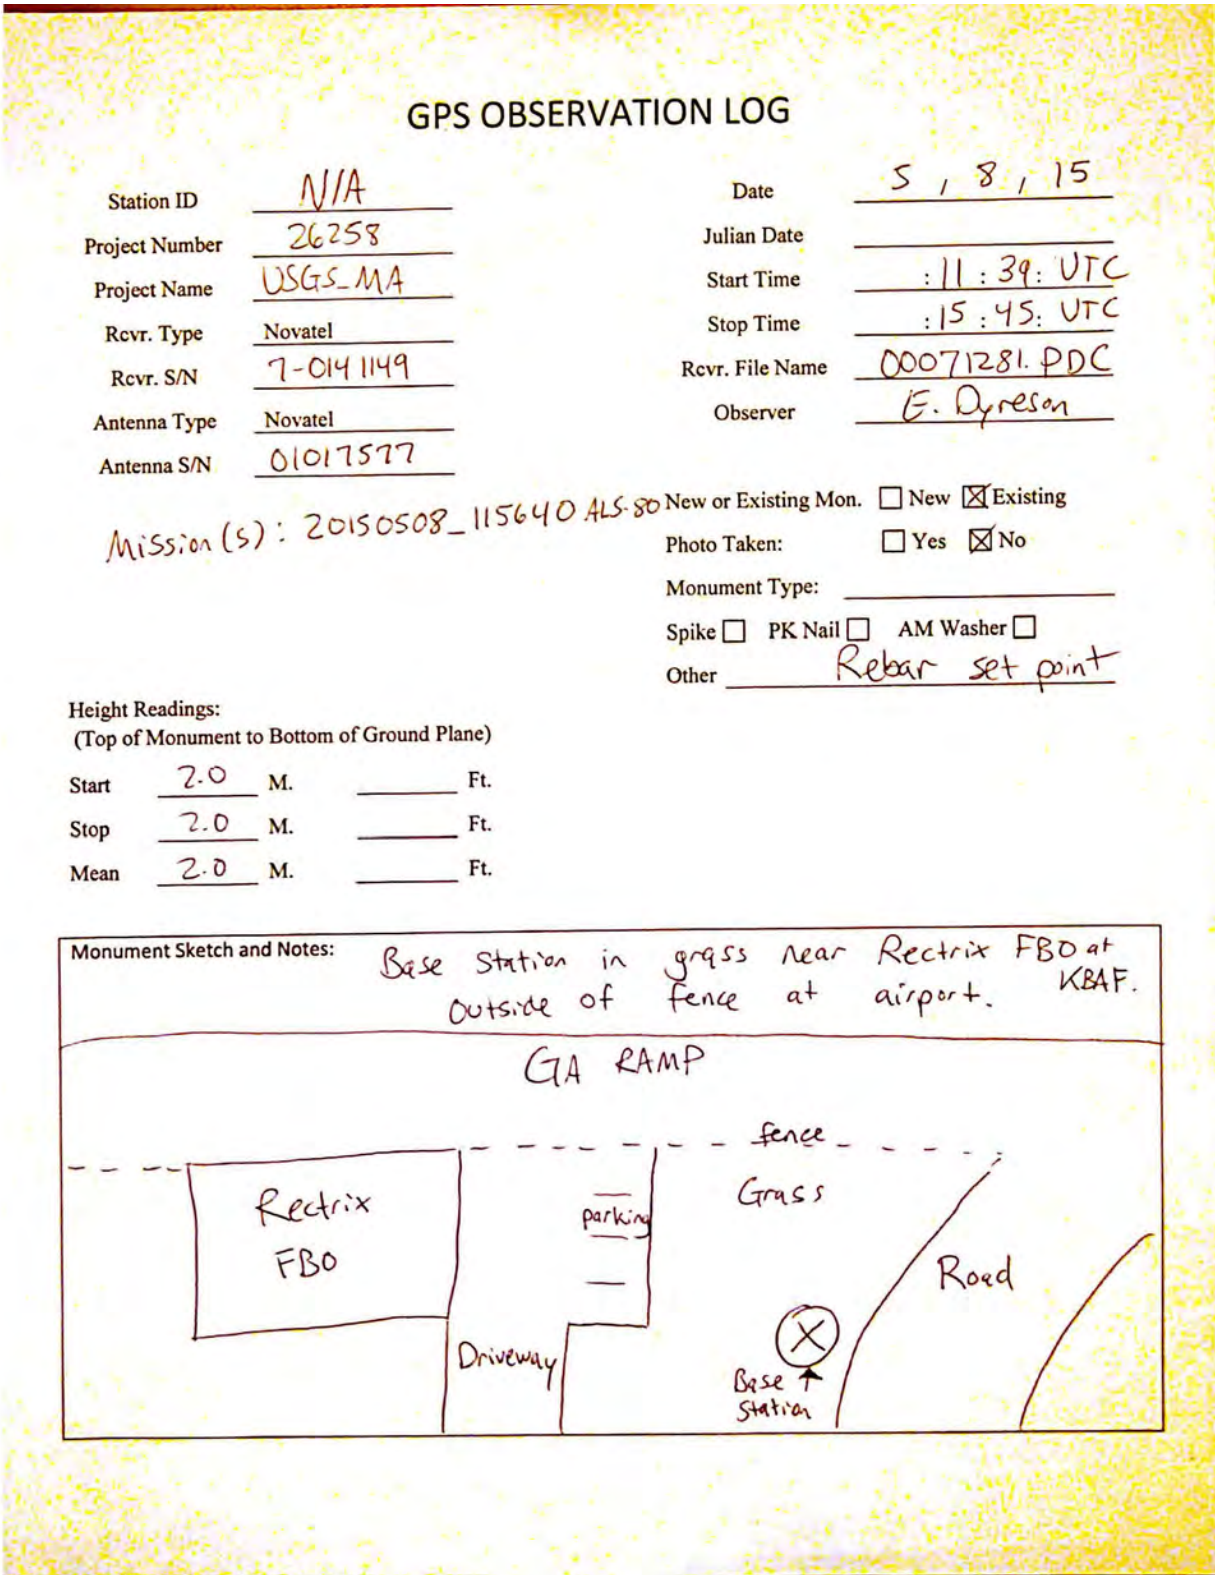 GPS OBSERVATION LOG
Station ID N/A
Project Number 26258
Project Name USGS_MA
Rcvr. Type Novatel
Rcvr. S/N 7-0141149
Antenna Type Novatel
Antenna S/N 01017577
Date 5 / 8 / 15
Julian Date
Start Time :11:39: UTC
Stop Time :15:45: UTC
Rcvr. File Name 00071281.PDC
Observer E. Dyreson
Mission(s): 20150508_115640 ALS-80
New or Existing Mon. ☐ New ☒ Existing
Photo Taken: ☐ Yes ☒ No
Monument Type:
Spike ☐ PK Nail ☐ AM Washer ☐
Other Rebar set point
Height Readings:
(Top of Monument to Bottom of Ground Plane)
Start 2.0 M. Ft.
Stop 2.0 M. Ft.
Mean 2.0 M. Ft.
Monument Sketch and Notes: Base Station in grass near Rectrix FBO at
KBAF.
Outside of fence at airport.
GA RAMP
fence
Rectrix
FBO
parking
Grass
Road
Driveway
Base
Station